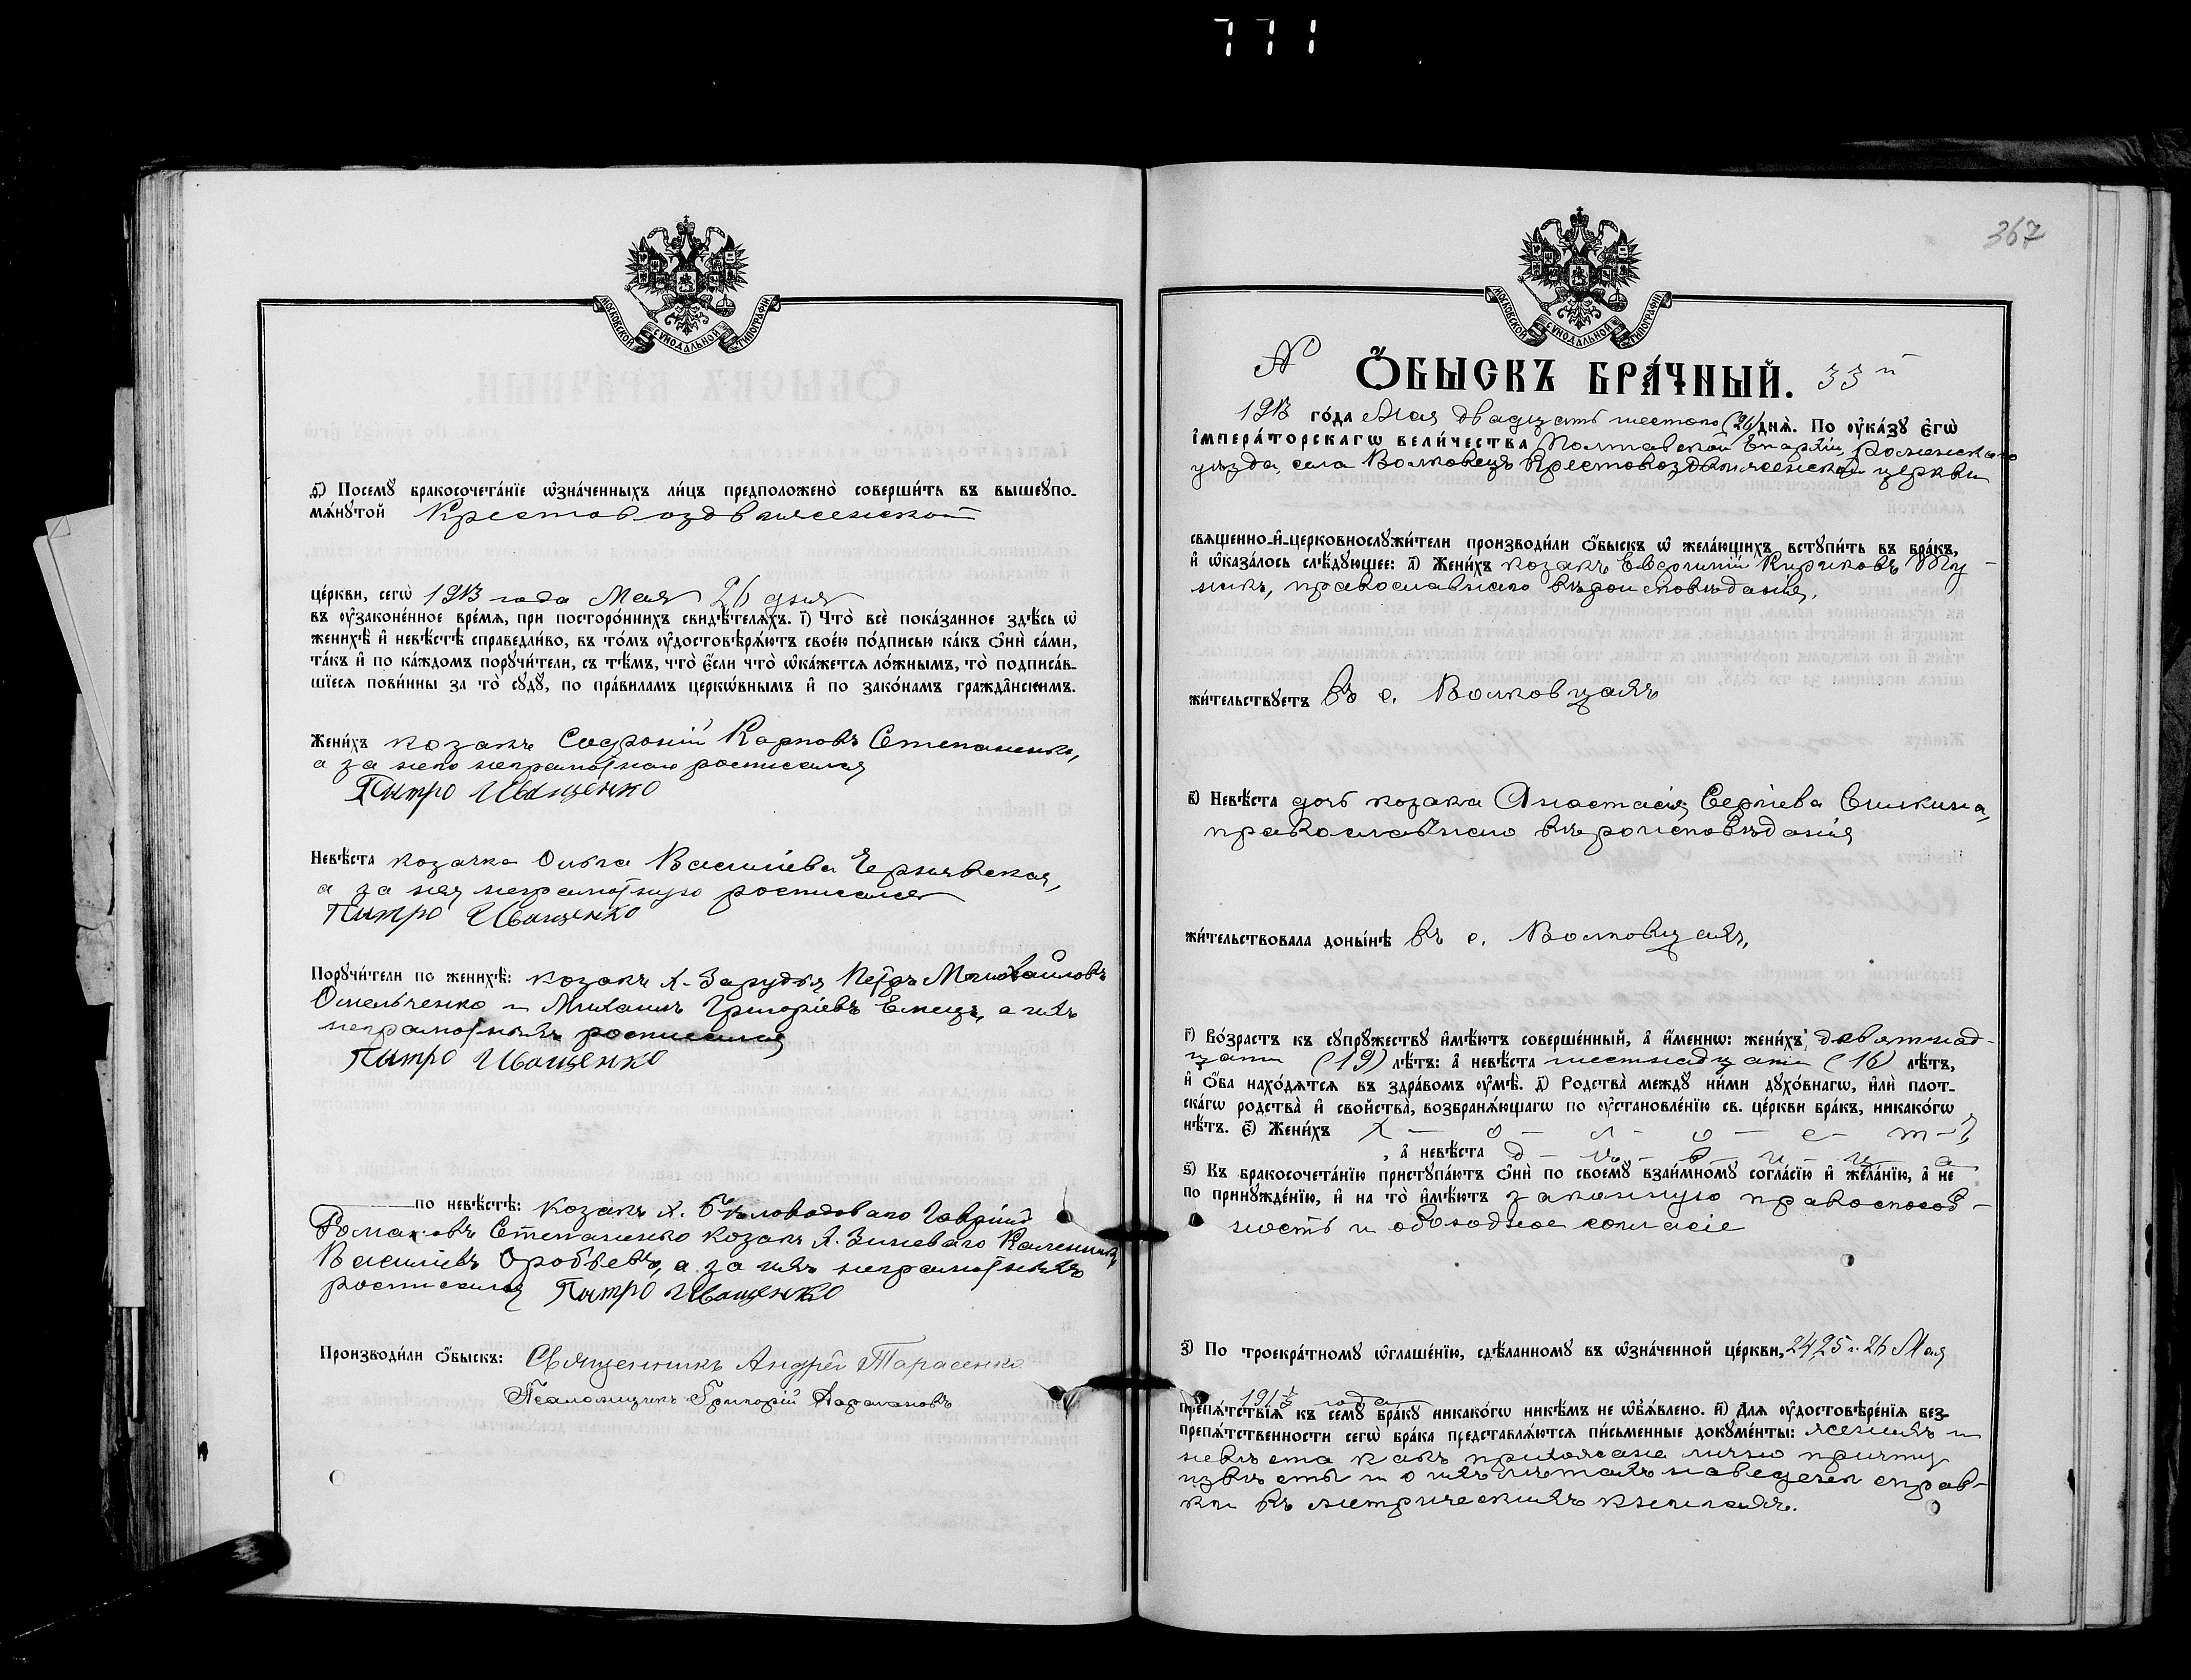 771
МОСКОВСКОЙ СѴНОДАЛЬНОЙ ТИПОГРАФІИ
д҃) Посемꙋ̀ бракосочета́нїе ѡ҆зна́ченныхъ ли́цъ предположено̀ соверши́ть въ вышеꙋпо-
мѧ́нꙋтой Крестовоздвиженской
це́ркви, сегѡ̀ 1913 года Мая 26 дня
въ ᲂу҆зако́ненное вре́мѧ, при посторо́ннихъ свидѣ́телѧхъ. і҃) Что̀ всѐ пока́занное здѣ́сь ѡ҆
женихѣ̀ и҆ невѣ́стѣ справедли́во, въ то́мъ ᲂу҆достовѣрѧ́ютъ свое́ю по́дписью ка́къ ѻ҆нѝ са́ми,
та́къ и҆ по ка́ждомъ порꙋчи́тели, съ тѣ́мъ, что̀ є҆́сли что̀ ѡ҆ка́жетсѧ ло́жнымъ, то̀ подписа́в-
шїесѧ пови́нны за то̀ сꙋдꙋ̀, по пра́виламъ церкѡ́внымъ и҆ по зако́намъ гражда́нскимъ.
Жени́хъ козакъ Софроній Карповъ Степаненко,
а за него неграмотнаго росписался
Пытро Иващенко
Невѣ́ста козачка Ольга Васильева Чернявская,
а за нея неграмотную росписался
Пытро Иващенко
Порꙋчи́тели по женихѣ̀: козакъ х. Зарудья Петръ Михайловъ
Омельченко и Михаилъ Григоріевъ Емецъ, а за нихъ
неграмотныхъ росписался
Пытро Иващенко
по невѣ́стѣ: козакъ х. Бѣловодскаго Гавріилъ
Романовъ Степаненко козакъ х. Зиневаго Каленикъ
Васильевъ Оробьевъ, а за нихъ неграмотныхъ
росписался Пытро Иващенко
Производи́ли ѻ҆́быскъ: Священникъ Андрей Тарасенко
Псаломщикъ Григорій
367
МОСКОВСКОЙ СѴНОДАЛЬНОЙ ТИПОГРАФІИ
№ Ѻ҆́БЫСКЪ БРА́ЧНЫЙ. 33й
1913 го́да Мая двадцать шестого (26) днѧ̀. По ᲂу҆ка́зꙋ Є҆гѡ̀
І҆мпера́торскагѡ вели́чества Полтавской Епархіи, Роменскаго
уѣзда, села Волковецъ Крестовоздвиженской церкви
свѧщенно-и҆-церковнослꙋжи́тели производи́ли ѻ҆́быскъ ѡ҆ жела́ющихъ встꙋпи́ть въ бра́къ,
и҆ ѡ҆каза́лось слѣ́дꙋющее: а҃) Жени́хъ козакъ Евфимій Кириковъ Му-
никъ, православнаго вѣроисповѣданія,
жи́тельствꙋетъ въ с. Волковцахъ
в҃) Невѣ́ста дочь козака Анастасія Сергіева Снижина,
православнаго вѣроисповѣданія
жи́тельствовала доны́нѣ въ с. Волковцахъ,
г҃) Во́зрастъ къ сꙋпрꙋ́жествꙋ и҆мѣ́ютъ соверше́нный, а҆ и҆́меннѡ: жени́хъ девятнад-
цати (19) лѣ́тъ: а҆ невѣ́ста шестнадцати (16) лѣ́тъ,
и҆ ѻ҆́ба нахо́дѧтсѧ въ здра́вомъ ᲂу҆мѣ̀. д҃) Родства̀ междꙋ ни́ми дꙋхо́внагѡ, и҆лѝ плот-
ска́гѡ родства̀ и҆ свойства̀, возбранѧ́ющагѡ по ᲂу҆становле́нїю св. це́ркви бра́къ, никако́гѡ
нѣ́тъ. є҃) Жени́хъ х - о - л - о - с - т - ъ,
, а҆ невѣ́ста д - ѣ - в - и - ц - а
ѕ҃) Къ бракосочета́нїю пристꙋпа́ютъ ѻ҆нѝ по своемꙋ̀ взаи́мномꙋ согла́сїю и҆ жела́нїю, а҆ не
по принꙋжде́нїю, и҆ на то̀ и҆мѣ́ютъ законную правоспособ-
ность и обоюдное согласіе
з҃) По троекра́тномꙋ ѡ҆глаше́нїю, сдѣ́ланномꙋ въ ѡ҆зна́ченной це́ркви, 24, 25 и 26 Мая
1913 года
препѧ́тствїѧ къ семꙋ̀ бра́кꙋ никако́гѡ никѣ́мъ не ѡ҆б̾ѧ́влено. и҃) Длѧ ᲂу҆достовѣре́нїѧ без-
препѧ́тственности сегѡ̀ бра́ка представлѧ́ютсѧ пи́сьменные докꙋме́нты: женихъ и
невѣста какъ прихожане лично причту
извѣстны и о ихъ лѣтахъ наведены справ-
ки въ метрическихъ книгахъ.